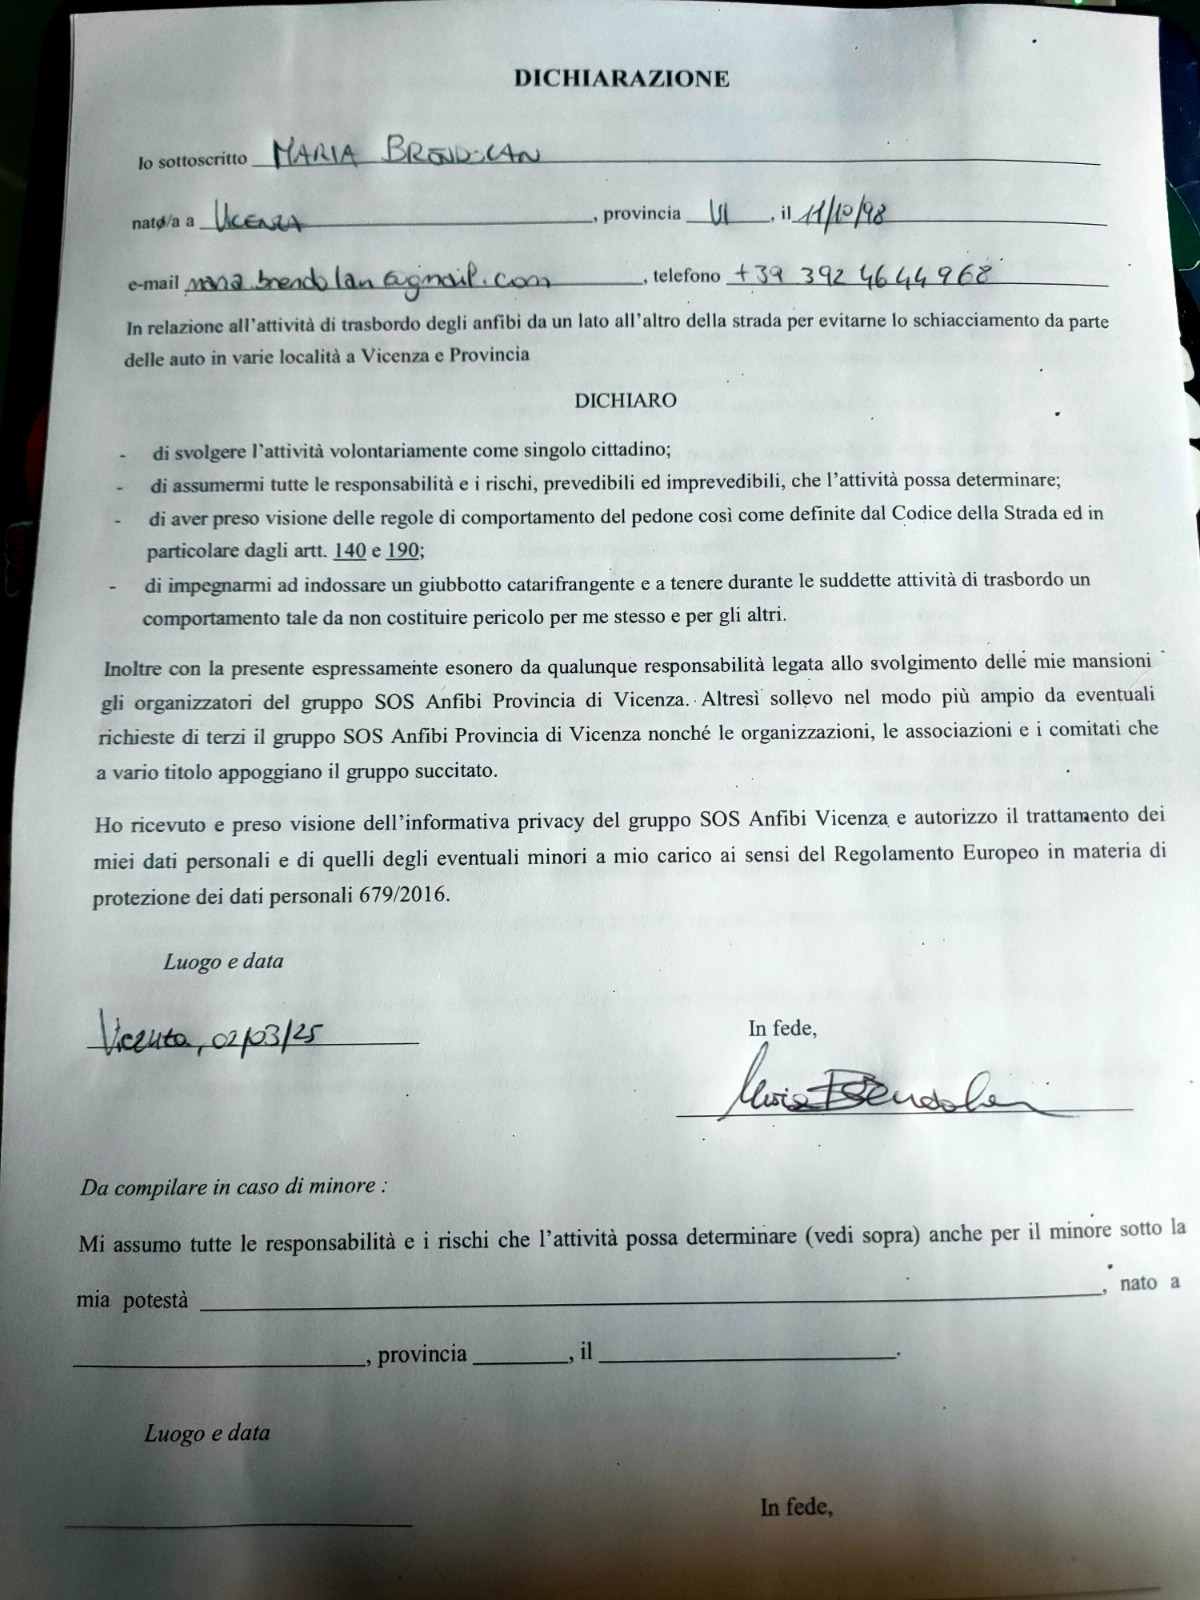 DICHIARAZIONE
Io sottoscritto MARIA BRENDOLAN
nato/a a VICENZA, provincia VI, il 11/10/98
e-mail maria.brendolan@gmail.com, telefono +39 392 4644968
In relazione all'attività di trasbordo degli anfibi da un lato all'altro della strada per evitarne lo schiacciamento da parte
delle auto in varie località a Vicenza e Provincia
DICHIARO
- di svolgere l'attività volontariamente come singolo cittadino;
- di assumermi tutte le responsabilità e i rischi, prevedibili ed imprevedibili, che l'attività possa determinare;
- di aver preso visione delle regole di comportamento del pedone così come definite dal Codice della Strada ed in
particolare dagli artt. 140 e 190;
- di impegnarmi ad indossare un giubbotto catarifrangente e a tenere durante le suddette attività di trasbordo un
comportamento tale da non costituire pericolo per me stesso e per gli altri.
Inoltre con la presente espressamente esonero da qualunque responsabilità legata allo svolgimento delle mie mansioni
gli organizzatori del gruppo SOS Anfibi Provincia di Vicenza. Altresì sollevo nel modo più ampio da eventuali
richieste di terzi il gruppo SOS Anfibi Provincia di Vicenza nonché le organizzazioni, le associazioni e i comitati che
a vario titolo appoggiano il gruppo succitato.
Ho ricevuto e preso visione dell'informativa privacy del gruppo SOS Anfibi Vicenza e autorizzo il trattamento dei
miei dati personali e di quelli degli eventuali minori a mio carico ai sensi del Regolamento Europeo in materia di
protezione dei dati personali 679/2016.
Luogo e data
Vicenza, 02/03/25
In fede,
Maria Brendolan
Da compilare in caso di minore :
Mi assumo tutte le responsabilità e i rischi che l'attività possa determinare (vedi sopra) anche per il minore sotto la
mia potestà ____, nato a
____, provincia ____, il ____.
Luogo e data
In fede,